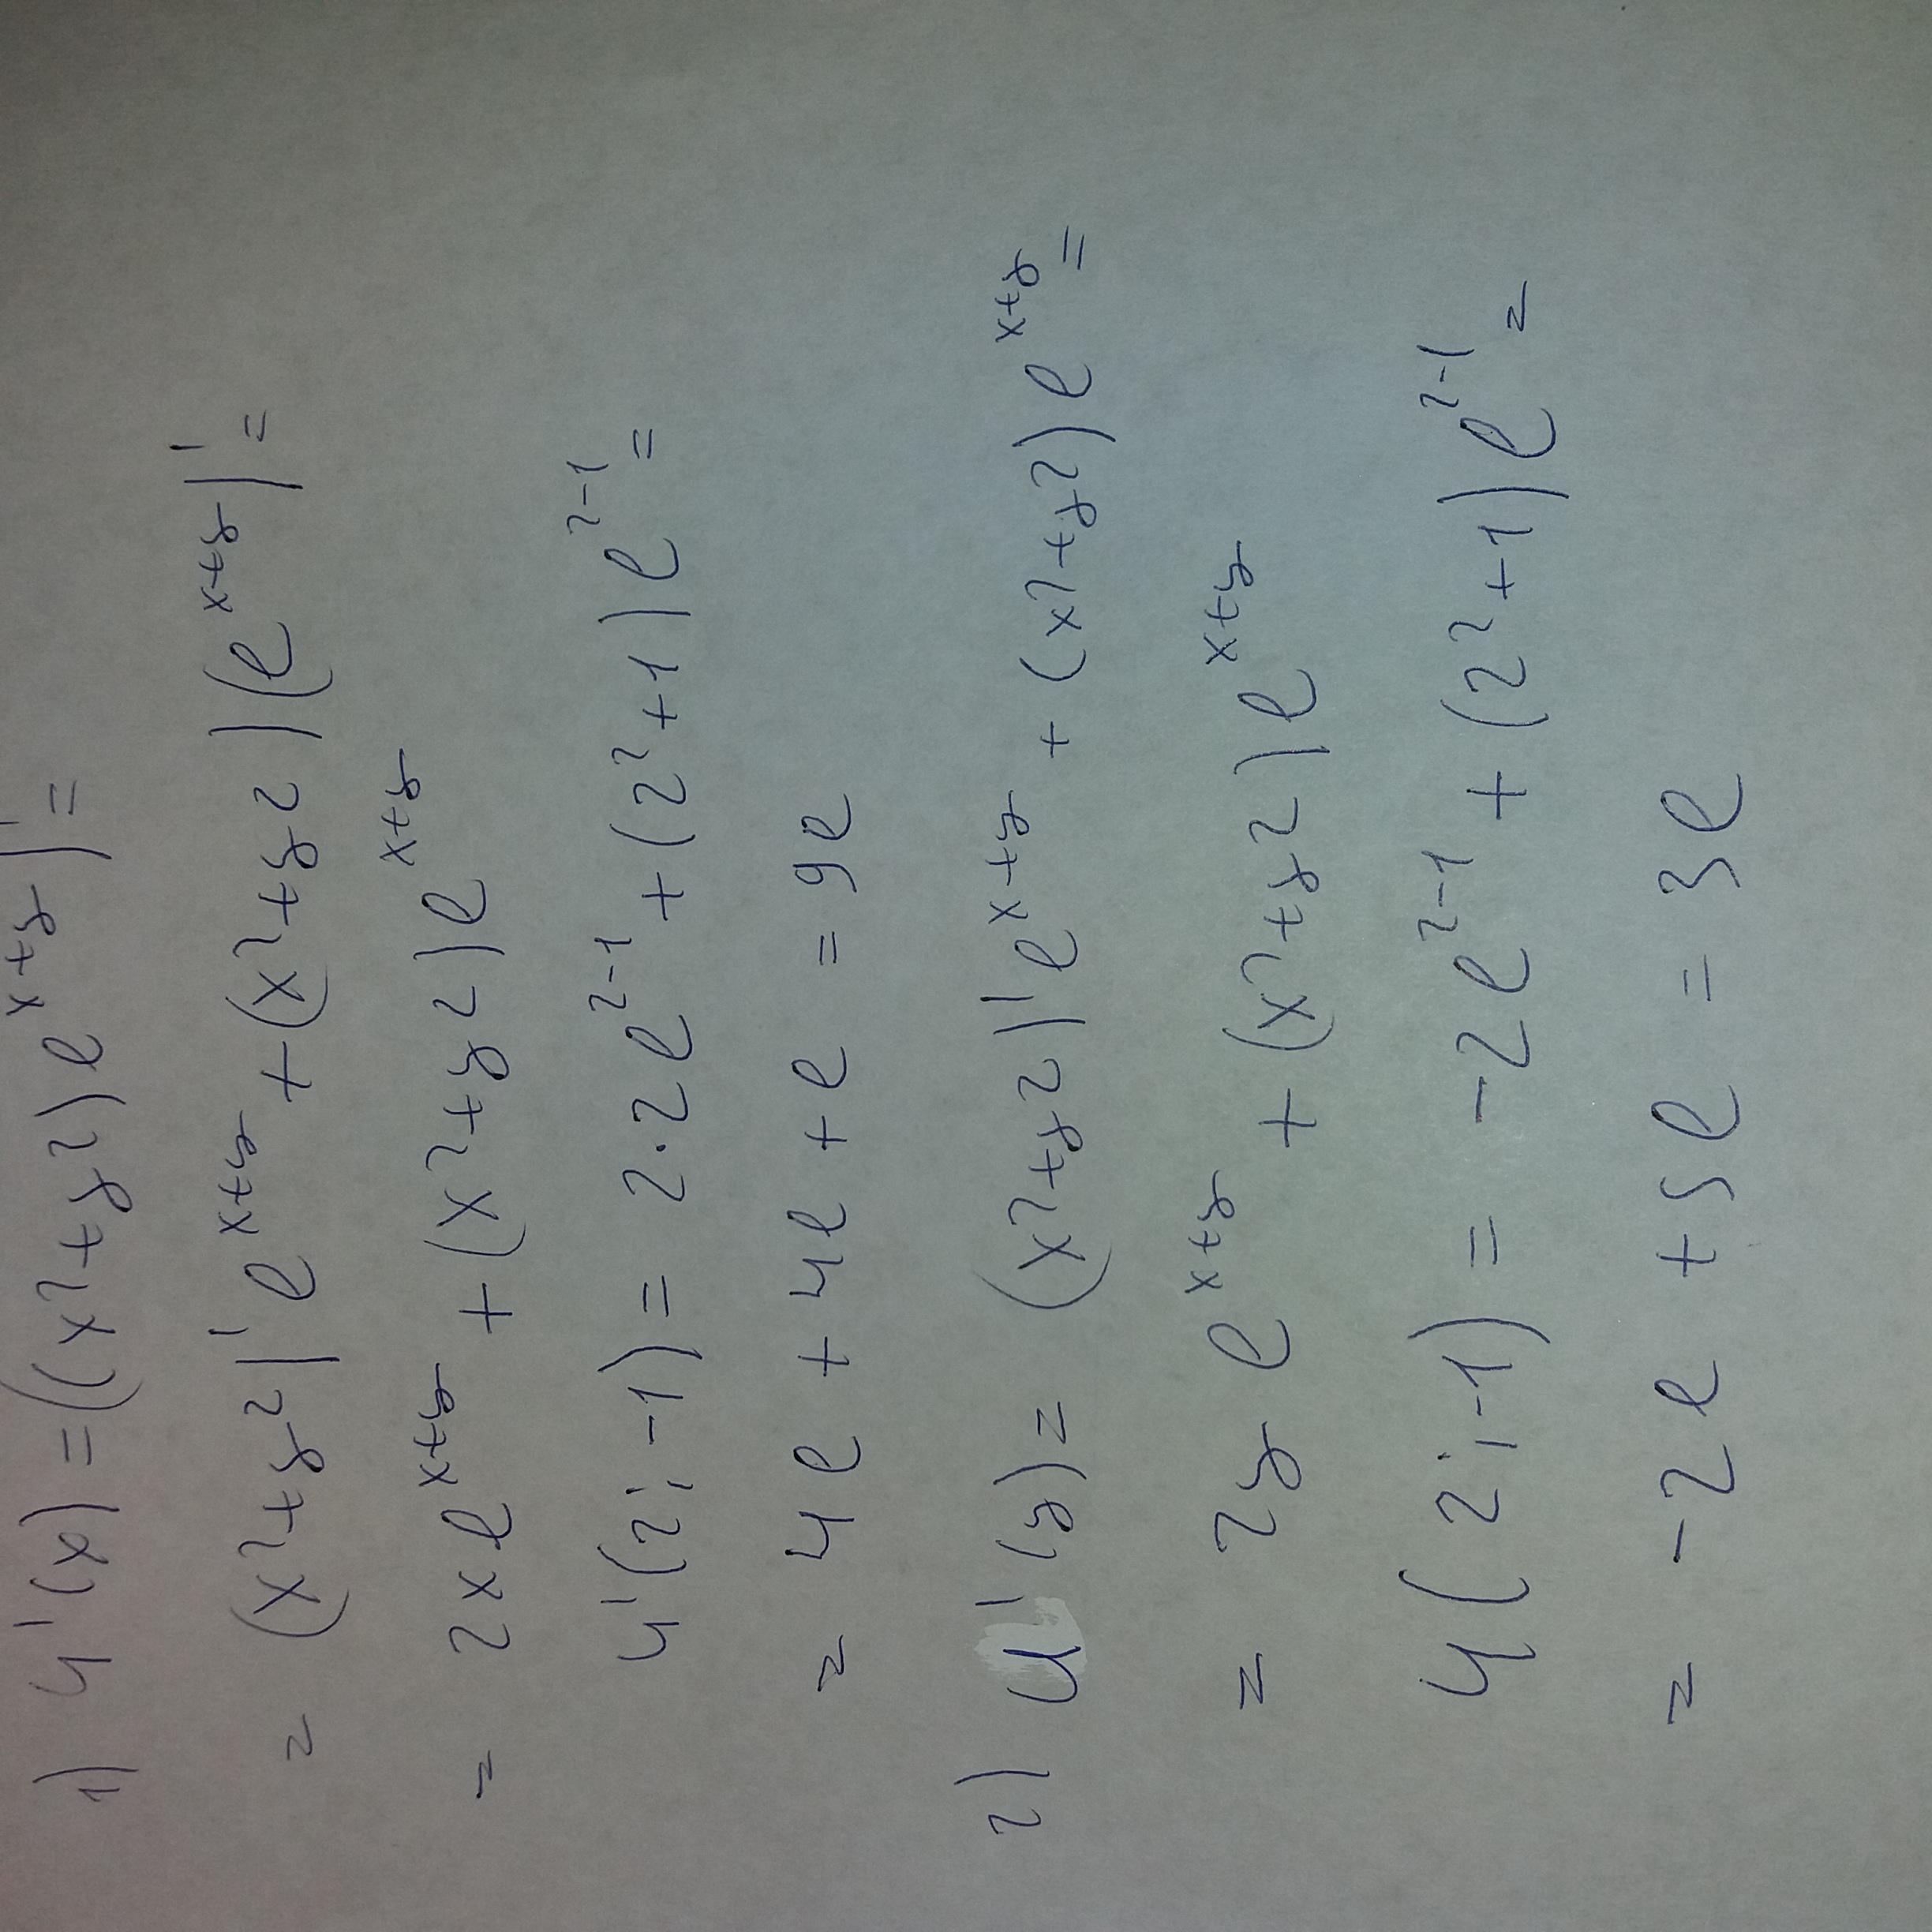 1) u'(x) = ((x²+y²)e^(x+y))' =
= (x²+y²)' e^(x+y) + (x²+y²)(e^(x+y))' =
= 2xe^(x+y) + (x²+y²)e^(x+y)
u'(2;-1) = 2·2e^(2-1) + (2²+1)e^(2-1) =
= 4e + 4e + e = 9e
2) u'(y) = (x²+y²)'e^(x+y) + (x²+y²)e^(x+y) =
= 2y e^(x+y) + (x²+y²)e^(x+y)
u(2;-1) = -2e^(2-1) + (2²+1)e^(2-1) =
= -2e + 5e = 3e